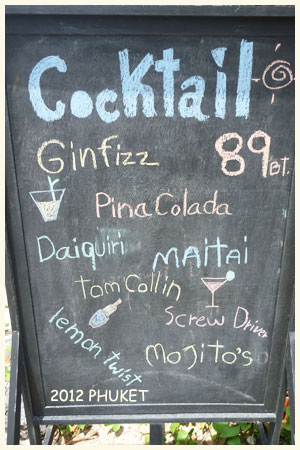 Cocktail
Ginfizz 89 BT.
Pina Colada
Daiquiri MAITAI
Tom Collin
Screw Driver
lemon twist
Mojito's
2012 PHUKET